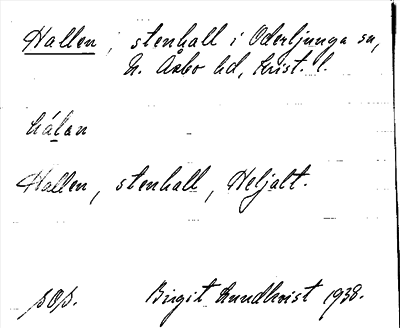 Hallen, stenhall i Oderljunga sn,
N. Åsbo hd, Krist. l.
hálan
Hallen, stenhall, Heljalt.
sos. Birgit Lundkvist 1938.